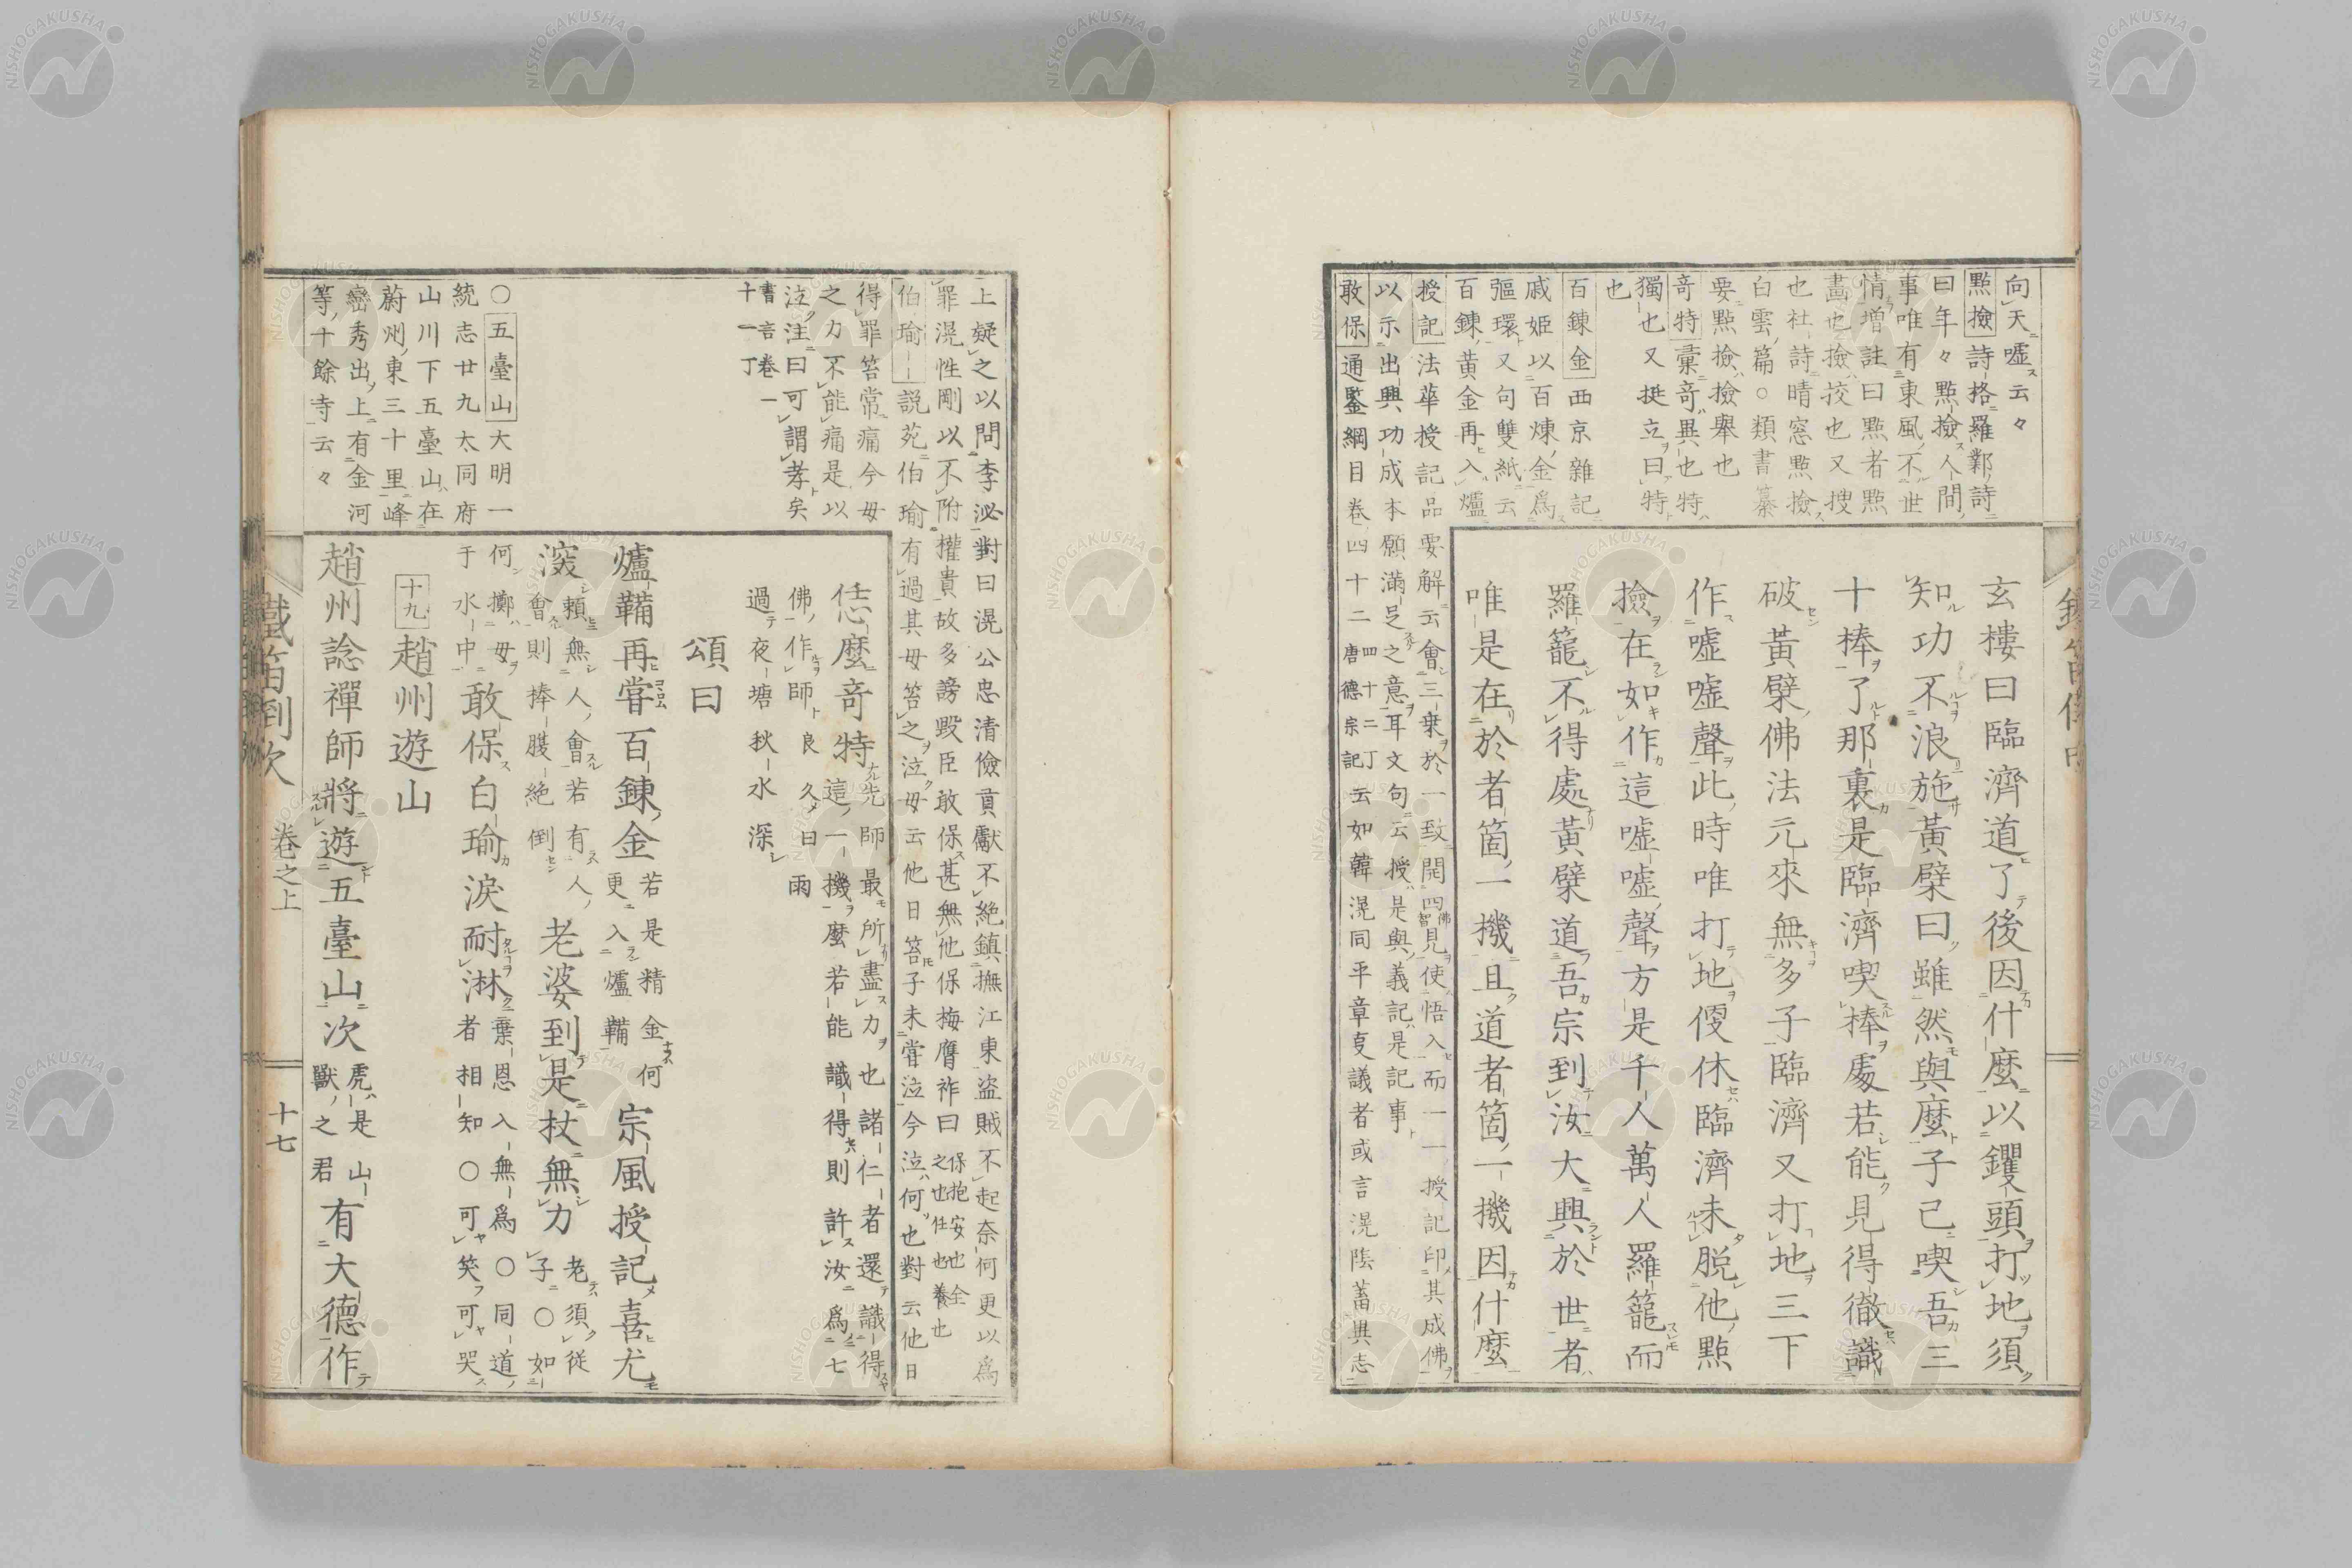 向天嘘云々
點撿詩格羅鄴詩
曰年々點撿人間
事唯有東風不世
情增註曰點者點
畫也撿挍也又搜
也杜詩晴窓點撿
白雲篇○類書纂
要點撿撿舉也
竒特彙竒異也特
獨也又挺立曰特
也
百鍊金西京雜記
戚姬以百煉金爲
彄環又句雙紙云
百鍊黃金再入爐
授記法華授記品要解云會三乗於一致開四佛智見使悟入而一一授記印其成佛
以示出興功成本願滿足之意耳文句云授是與義記是記事
敢保通鑒綱目卷四十二唐德宗記四十二丁云如韓滉同平章叓議者或言滉隂蓄異志
玄樓曰臨濟道了後因什麼以钁頭打地須
知功不浪施黃檗曰雖然與麼子己喫吾三
十棒了那裏是臨濟喫棒處若能見得徹識
破黃檗佛法元來無多子臨濟又打地三下
作嘘嘘聲此時唯打地便休臨濟未脱他點
撿在如作這嘘嘘聲方是千人萬人羅籠而
羅籠不得處黃檗道吾宗到汝大興於世者
唯是在於者箇一機且道者箇一機因什麼
鐵笛倒吹
上疑之以問李泌對曰滉公忠清儉貢獻不絶鎮撫江東盗賊不起奈何更以爲
罪滉性剛以不附權貴故多謗毀臣敢保甚無他保梅膺祚曰保抱安也全之也任也養也
伯瑜――説苑伯瑜有過其母笞之泣母云他日笞子未甞泣今泣何也對云他日
得罪笞常痛今母
之力不能痛是以
泣注曰可謂孝矣
書言卷一
十一丁
恁麼竒特這一機麼若能識得則許汝爲七先師最所盡力也諸仁者還識得
佛作師良久曰雨
過夜塘秋水深
頌曰
爐鞴再甞百鍊金若是精金何更入爐鞴宗風授記喜尤
深頼無人會若有人會則捧腹絶倒老婆到是杖無力老須從子○如
何擲母于水中敢保白瑜淚耐淋棄恩入無爲○同道者相知○可笑可哭
十九趙州遊山
○五臺山大明一
統志廿九大同府
山川下五臺山在
蔚州東三十里峰
巒秀出上有金河
等十餘寺云々
趙州諗禪師將遊五臺山次虎是山獸之君有大德作
鐵笛倒吹 卷之上 十七